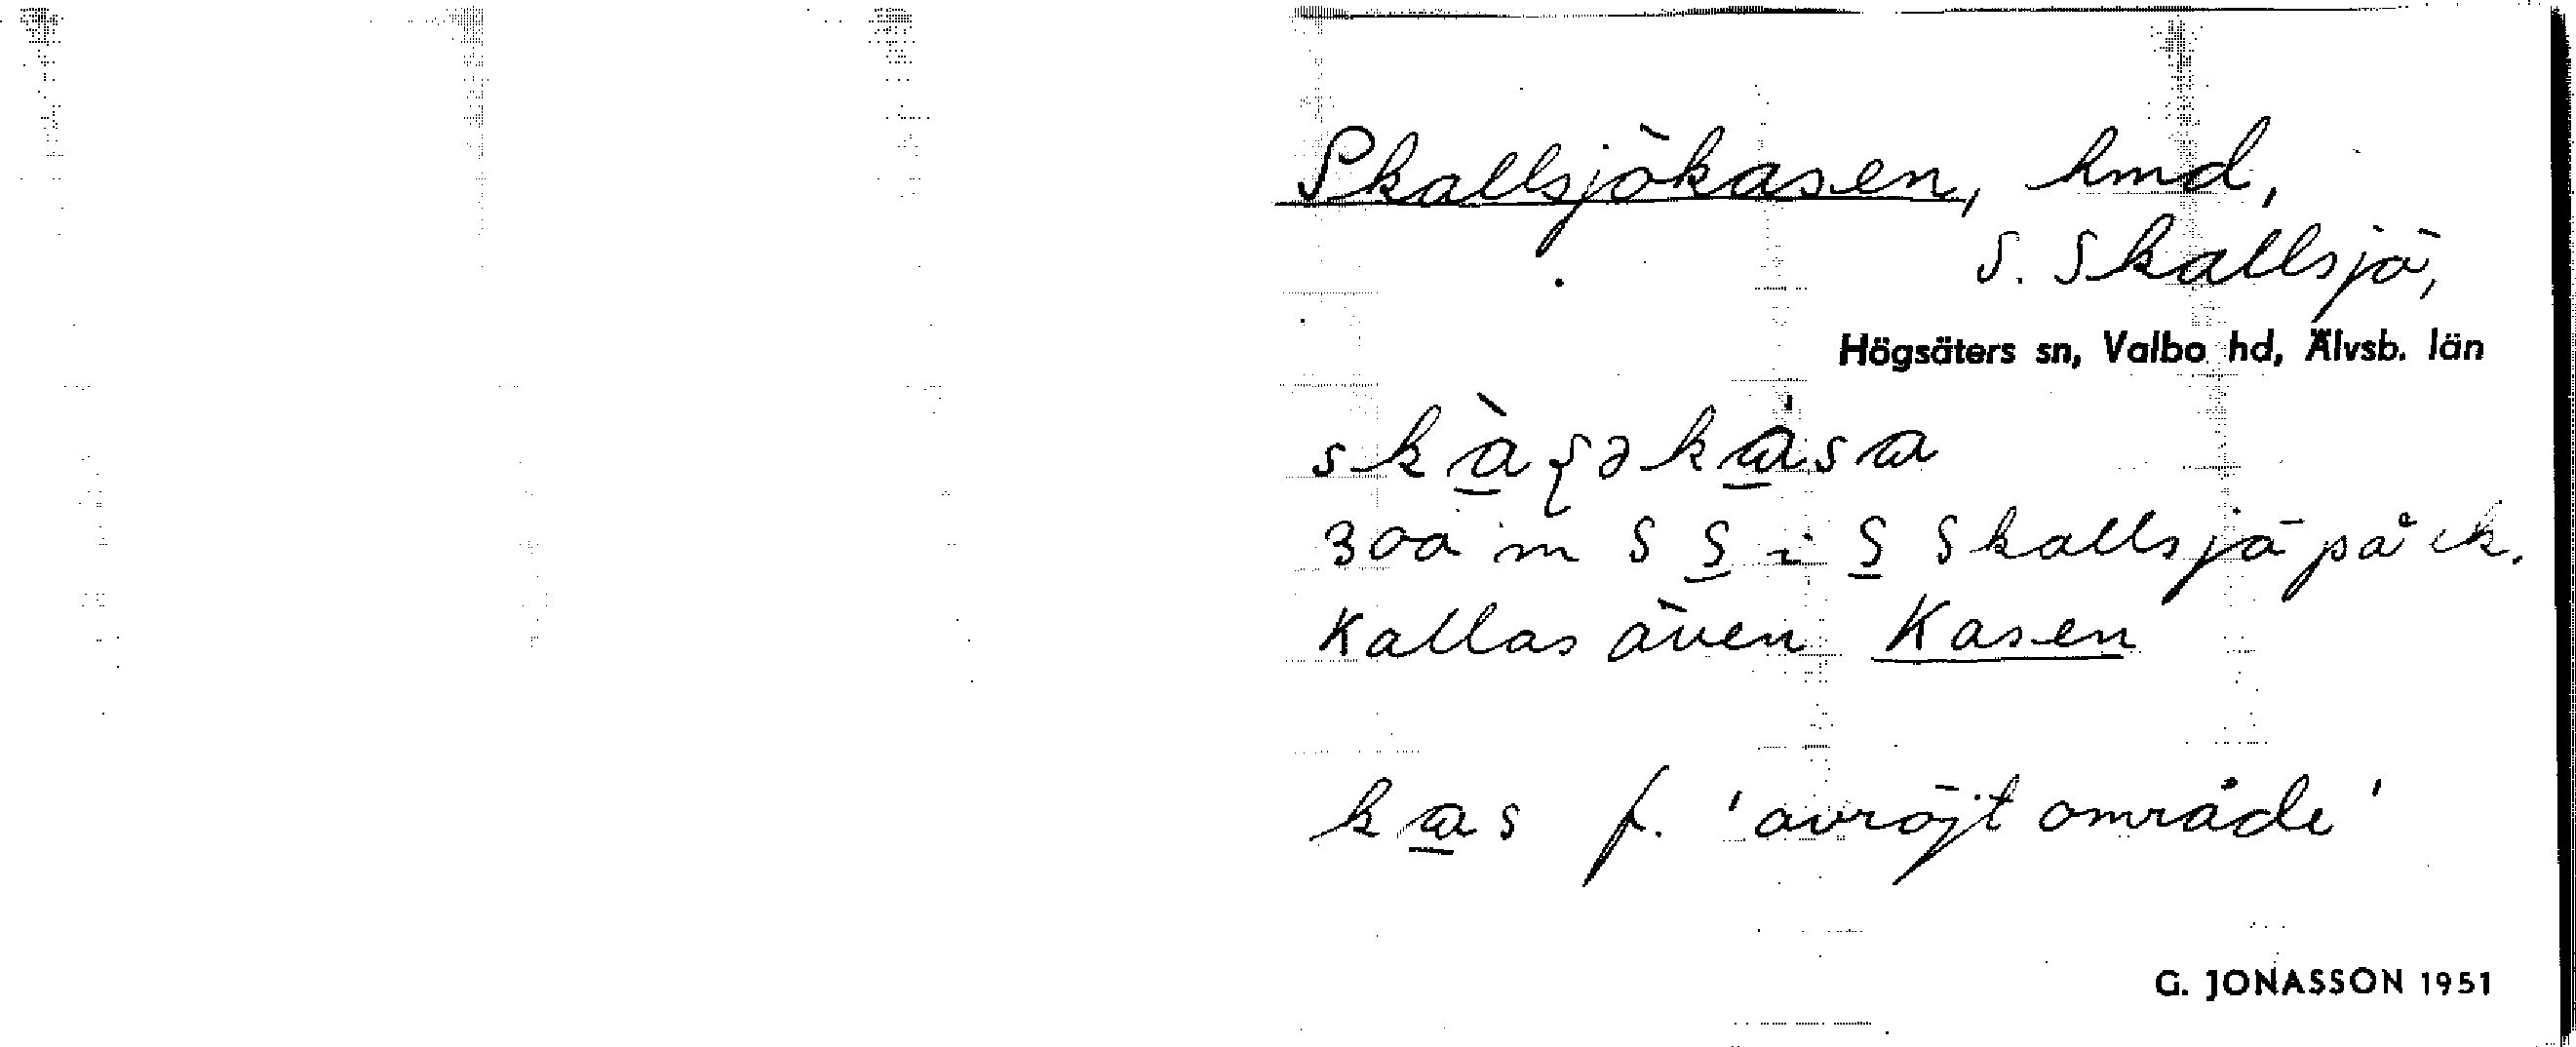 Skallsjökasen, hmd,
S. Skallsjö,
Högsäters sn, Valbo hd, Älvsb. län
300 m S S i S Skallsjö på ek.
Kallas även Kasen
kas f. 'avröjt område'
G. JONASSON 1951